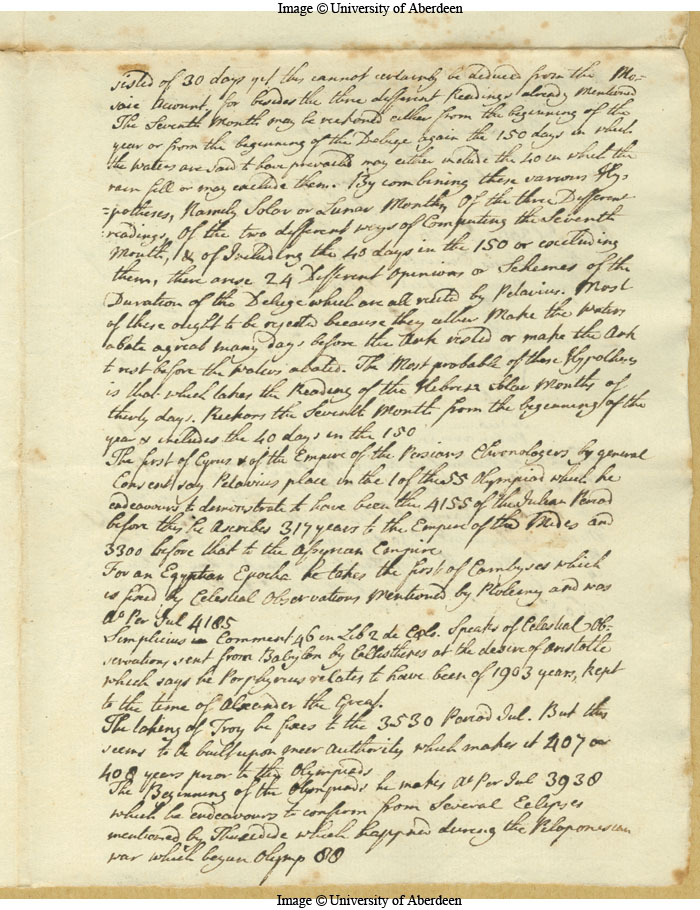 Image © University of Aberdeen
sisted of 30 days yet this cannot certainly be deduced from the Mo=
saic Account, for besides the three different Readings already mentioned
The Seventh Month may be reckoned either from the beginning of the
year or from the beginning of the Deluge again the 150 days in which
the Waters are said to have prevailed may either include the 40 in which the
rain fell or may exclude them. By combining these various Hy=
=potheses, Namely Solar or Lunar Months, Of the three Different
readings, Of the two different ways of Computing the Seventh
Month, & of Including the 40 days in the 150 or excluding
them, there arise 24 Different Opinions or Schemes of the
Duration of the Deluge which are all recited by Petavius. Most
of these ought to be rejected because they either Make the Waters
abate a great many days before the Ark rested or make the Ark
to rest before the Waters abated. The Most probable of these Hypotheses
is that which takes the Reading of the Hebrew Solar Months of
thirty days. Reckons the Seventh Month from the beginning of the
year & includes the 40 days in the 150
The first of Cyrus & of the Empire of the Persians Chronologers by general
Consent say Petavius place in the 1 of the 55 Olympiad which he
endeavours to demonstrate to have been the 4155 of the Julian Period
before this he Ascribes 317 years to the Empire of the Medes and
3300 before that to the Assyrian Empire
For an Egyptian Epocha he takes the first of Cambyses which
is fixed by Celestial Observations Mentioned by Ptolemy and was
Ao Per Jul 4185
Simplicius in Comment 46 in Lib 2 de Cælo. Speaks of Celestial Ob=
servations sent from Babylon by Callisthenes at the desire of Aristotle
which says he Porphyrius relates to have been of 1903 years, kept
to the time of Alexander the Great.
The taking of Troy he fixes to the 3530 Period Jul. But this
seems to be built upon meer Authority which makes it 407 or
408 years prior to the Olympiads
The Beginning of the Olympiads he makes Ao Per Jul 3938
which he endeavours to confirm from Several Eclipses
mentioned by Thucidide which happned during the Peloponesian
war which began Olymp 88
Image © University of Aberdeen